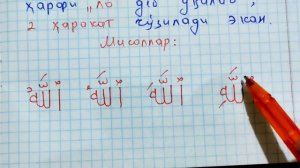 ҳарфи „ла" деб ўқилиб,
2 ҳаракат чўзилади экан.
Мисоллар:
اَللَّهِ اَللَّهَ اَللَّهُ اَللَّهُ